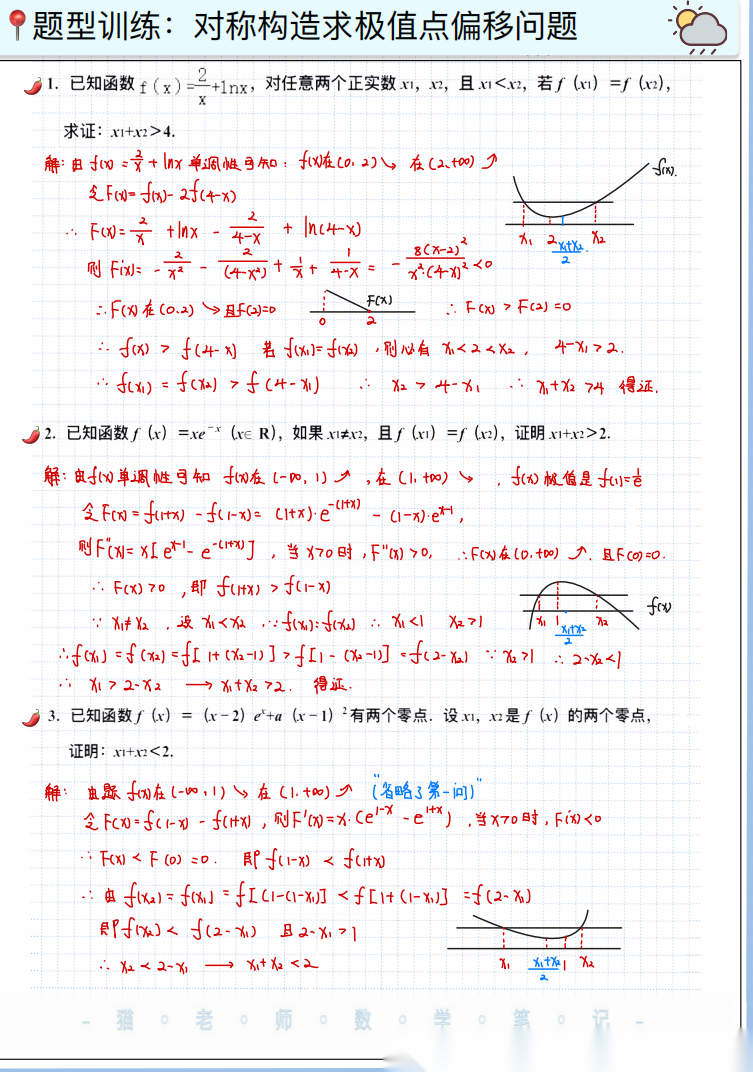 题型训练：对称构造求极值点偏移问题
1. 已知函数 f(x)=2/x+lnx，对任意两个正实数 x1，x2，且 x1＜x2，若 f（x1）=f（x2），
求证：x1+x2＞4.
解：由 f(x)=2/x+lnx 单调性可知：f(x)在(0,2)↘ 在(2,+∞)↗
令F(x)=f(x)-2f(4-x)
∴ F(x)=2/x+lnx-2/(4-x)+ln(4-x)
则 F'(x)=-2/x²-2/(4-x²)+1/x+1/(4-x)=-8(x-2)²/x²·(4-x)²<0
∴F(x)在(0.2)↘且F(2)=0 0 2 F(x) ∴F(x)>F(2)=0
∴ f(x)>f(4-x) 若 f(x1)=f(x2)，则必有 x1<2<x2，4-x1>2.
∴ f(x1)=f(x2)>f(4-x1) ∴ x2>4-x1 ∴ x1+x2>4 得证.
f(x).
x1 2 (x1+x2)/2 x2
2. 已知函数 f（x）=xe⁻ˣ（x∈R），如果 x1≠x2，且 f（x1）=f（x2），证明 x1+x2＞2.
解：由f(x)单调性可知 f(x)在(-∞,1)↗，在(1,+∞)↘，f(x)极值是f(1)=1/e
令F(x)=f(1+x)-f(1-x)=(1+x)·e^-(1+x)-(1-x)·e^x-1，
则F''(x)=x[e^x-1-e^-(1+x)]，当x>0时，F''(x)>0，∴F(x)在(0,+∞)↗.且F(0)=0.
∴ F(x)>0，即 f(1+x)>f(1-x)
∵ x1≠x2，设 x1<x2 ∵f(x1)=f(x2) ∴ x1<1 x2>1
f(x)
x1 1 (x1+x2)/2 x2
∴f(x1)=f(x2)=f[1+(x2-1)]>f[1-(x2-1)]=f(2-x2) ∵x2>1 ∴2-x2<1
∴ x1>2-x2 ⟶ x1+x2>2. 得证.
3. 已知函数 f（x）=（x－2）eˣ+a（x－1）²有两个零点．设 x1，x2是 f（x）的两个零点，
证明：x1+x2＜2.
解：由题 f(x)在(-∞,1)↘ 在(1,+∞)↗ “(省略了第一问)”
令F(x)=f(1-x)-f(1+x)，则F'(x)=x·(e^1-x-e^1+x)，当x>0时，F'(x)<0
∴ F(x)<F(0)=0. 即 f(1-x)<f(1+x)
∴由 f(x2)=f(x1)=f[(1-(1-x1)]<f[1+(1-x1)]=f(2-x1)
即f(x2)<f(2-x1) 且2-x1>1
∴ x2<2-x1 ⟶ x1+x2<2
x1 (x1+x2)/2 1 x2
- 猫 ∘ 老 ∘ 师 ∘ 数 ∘ 学 ∘ 笔 ∘ 记 -